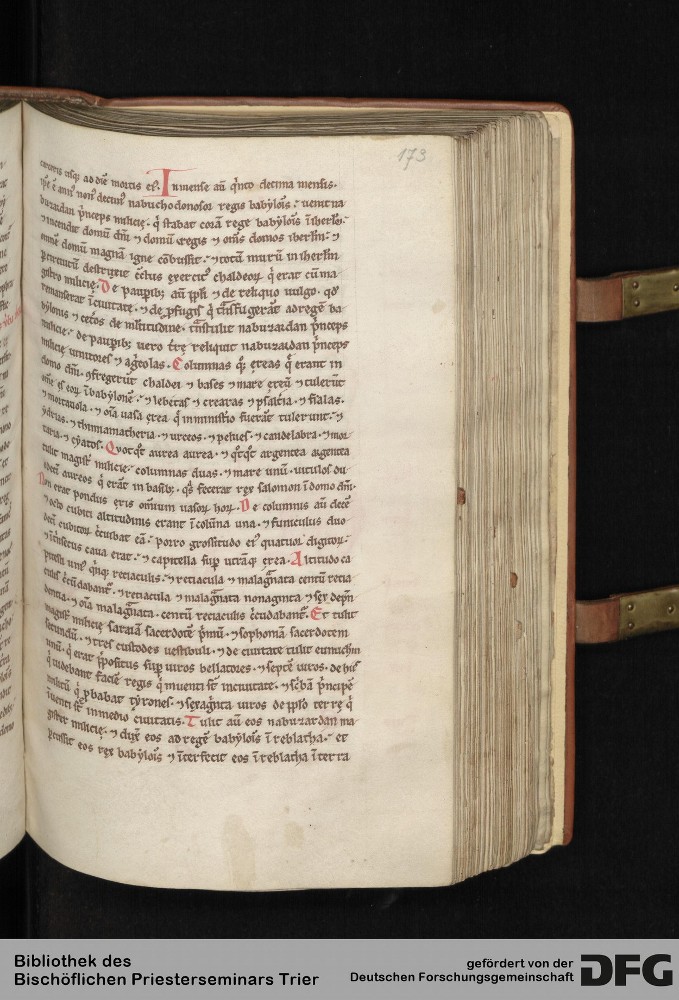 173
carceris usq; ad diē mortis ei. In mense aū q̇nto decima mensis.
ipse ē ann' non' decim' nabuchodonosor regis babylois: uenit na
buzardan p̄nceps milicie. q̇ stabat corā rege babylois ī ihrlm.
⁊ incendit domū dn̄i ⁊ domū regis ⁊ om̄s domos ihrlm: ⁊
omnē domū magnā igne cōbussit: ⁊ totū murū in ihrlm
p circuitū destruxit cūctus exercit' chaldeor q̇ erat cū ma
gistro milicie. De paupib; aū ppli ⁊ de reliquo uulgo. qd'
remanserat ī ciuitate. ⁊ de pfugis q̇ trāsfugerāt ad regē ba
bylonis ⁊ ceteros de multitudine. trāstulit nabuzardan p̄nceps
milicie. de paupib; uero tre reliquit nabuzardan p̄nceps
milicie uinitores ⁊ agcolas. Columnas q; ereas q̇ erant in
domo dn̄i. 9fregerūt chaldei ⁊ bases ⁊ mare ereū ⁊ tulerūt
omē es eor ī babylonē. ⁊ lebetas ⁊ crearas ⁊ psaltia. ⁊ fialas.
⁊ mortariola. ⁊ oīa uasa erea q̇ in ministio fuerāt tulerunt. ⁊
ydrias. ⁊ thimiamatheria. ⁊ urceos. ⁊ pelues. ⁊ candelabra. ⁊ mor
taria. ⁊ cyatos. Quotq̇t aurea aurea. ⁊ q̇tq̇t argentea argentea
tulit magist' milicie. columnas duas. ⁊ mare unū. uitulos du
odecī aureos q̇ erāt in basib;. q̇s fecerat rex salomon ī domo dn̄i.
Non erat pondus eris omnium uasor hor. De columnis aū dece
⁊ octo cubiti altitudinis erant ī colūna una. ⁊ funiculus duo
decī cubitor ccuibat eā. porro grossitudo ei' quatuor digitor.
⁊ ītrīsecus caua erat. ⁊ capitella sup utrāq; erea. Altitudo ca
pitelli uni' q̇nq; reciaculis. ⁊ reciacula ⁊ malagnata centū recia
culis ccūdabant. ⁊ reciacula ⁊ malagnata nonaginta ⁊ sex depn̄
dentia. ⁊ oīa malagnata. centū reciaculis ccūdabant. Et tulit
magist' milicie saraiā sacerdotē p̄mū. ⁊ sophoniā sacerdotem
secundū. ⁊ tres custodes uestibuli. ⁊ de ciuitate tulit eunuchū
unū. q̇ erat p̄positus sup uiros bellatores. ⁊ septē uiros. de his
q̇ uidebant faciē regis q̇ inuenti st̄ inciuitate. ⁊ scbā p̄ncipē
militū q̇ pbabat tyrones. ⁊ sexaginta uiros de pplo terrę q̇
īuenti st̄ in medio ciuitatis. Tulit aū eos nabuzardan ma
gister milicie. ⁊ dux eos ad regē babylois ī reblatha. et
pcussit eos rex babylois ⁊ īterfecit eos ī reblatha ī terra
Bibliothek des
Bischöflichen Priesterseminars Trier
gefördert von der
Deutschen Forschungsgemeinschaft
DFG